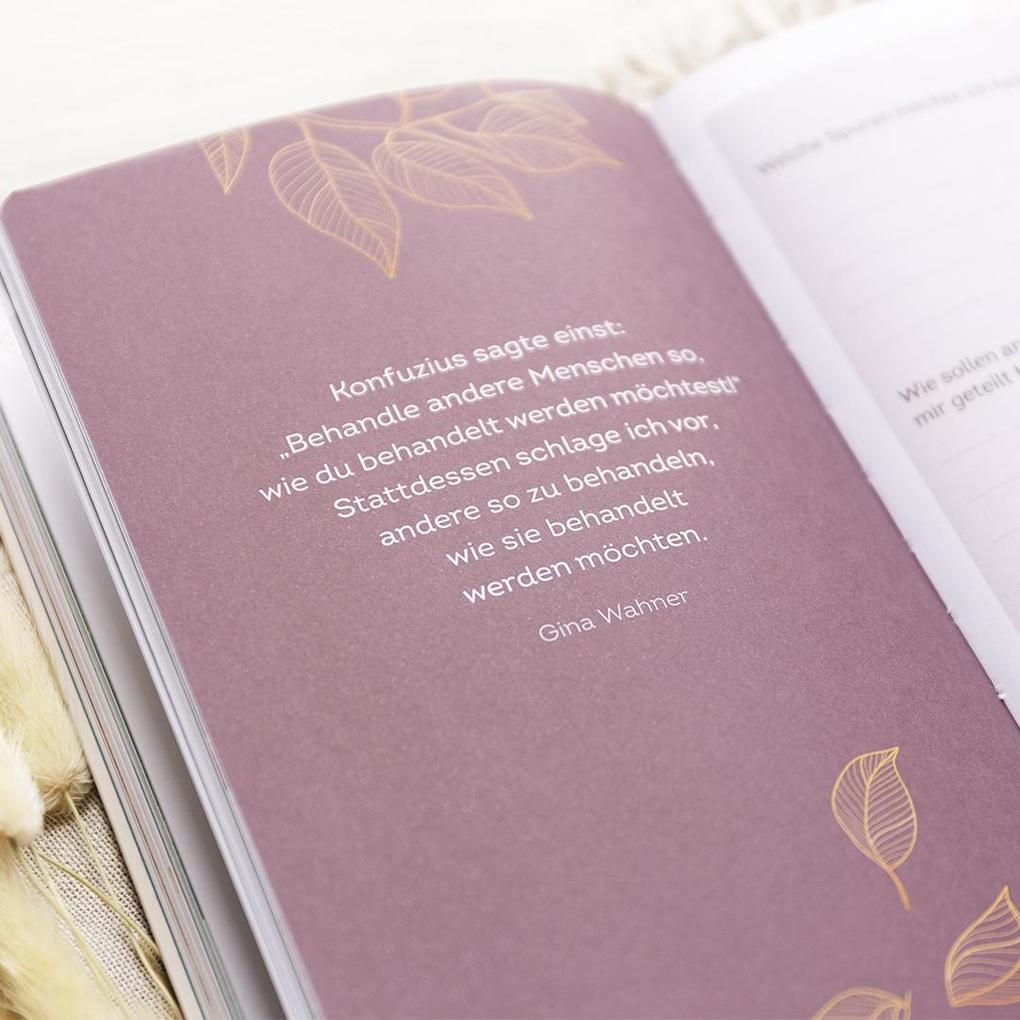 Konfuzius sagte einst:
„Behandle andere Menschen so,
wie du behandelt werden möchtest!"
Stattdessen schlage ich vor,
andere so zu behandeln,
wie sie behandelt
werden möchten.
Gina Wahner
Wie sollen
mir geteilt